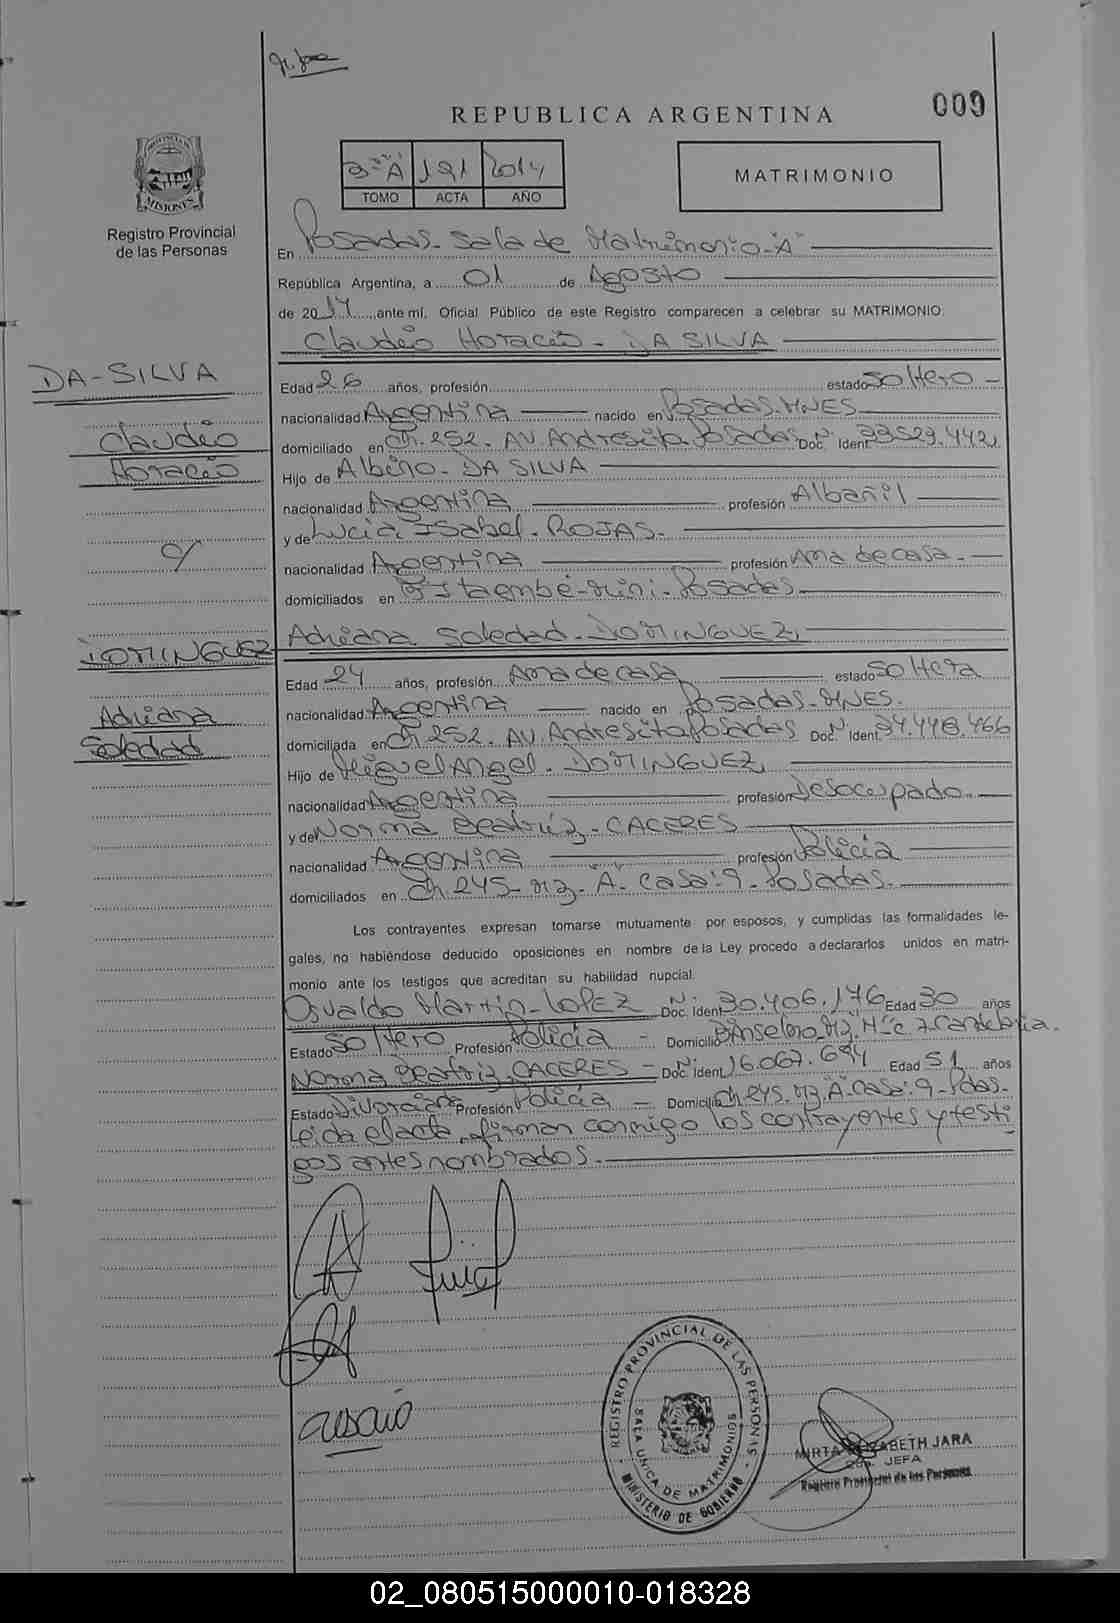 REPUBLICA ARGENTINA
009
3º "A" 191 2014
TOMO ACTA AÑO
MATRIMONIO
PROVINCIA DE
MISIONES
Registro Provincial
de las Personas
En Posadas. Sala de Matrimonio. "A"
República Argentina, a 01 de Agosto
de 2014, ante mí, Oficial Público de este Registro comparecen a celebrar su MATRIMONIO:
Claudio Horacio. DA SILVA
DA-SILVA
Claudio
Horacio
c/
DOMINGUEZ
Adriana
Soledad
Edad 26 años, profesión estado soltero
nacionalidad Argentina nacido en Posadas. MNES
domiciliado en Ch. 252. AV. Andresito. Posadas Doc. Nº Ident. 33.529.442
Hijo de Albino. DA SILVA
nacionalidad Argentina profesión Albañil
y de Lucia Isabel. ROJAS.
nacionalidad Argentina profesión Ama de casa.
domiciliados en Bº Itaembé-mini. Posadas
Adriana Soledad. DOMINGUEZ
Edad 24 años, profesión Ama de casa estado soltera
nacionalidad Argentina nacido en Posadas. MNES.
domiciliada en Ch 252. AV. Andresito Posadas Doc. Nº Ident. 34.448.466
Hijo de Miguel Angel. DOMINGUEZ
nacionalidad Argentina profesión Desocupado.
y de Norma Beatriz. CACERES
nacionalidad Argentina profesión Policia
domiciliados en Ch 245. mz. "A". Casa: 9. Posadas.
Los contrayentes expresan tomarse mutuamente por esposos, y cumplidas las formalidades le-
gales, no habiéndose deducido oposiciones en nombre de la Ley procedo a declararlos unidos en matri-
monio ante los testigos que acreditan su habilidad nupcial.
Osvaldo Martin. LOPEZ Doc. Nº Ident. 30.406.176 Edad 30 años
Estado soltero Profesión Policia Domicilio Bº Anselmo. Mz. H. C. 7. Candelaria.
Norma Beatriz. CACERES Doc. Nº Ident. 16.067.694 Edad 51 años
Estado Divorciada Profesión Policia Domicilio Ch 245. mz. "A" Casa: 9. Pdas.
Leida el acta, firman conmigo los contrayentes y testi
gos antes nombrados.
REGISTRO PROVINCIAL DE LAS PERSONAS
SALA UNICA DE MATRIMONIOS
MINISTERIO DE GOBIERNO
MIRTA ELIZABETH JARA
JEFA
Registro Provincial de las Personas
02_080515000010-018328